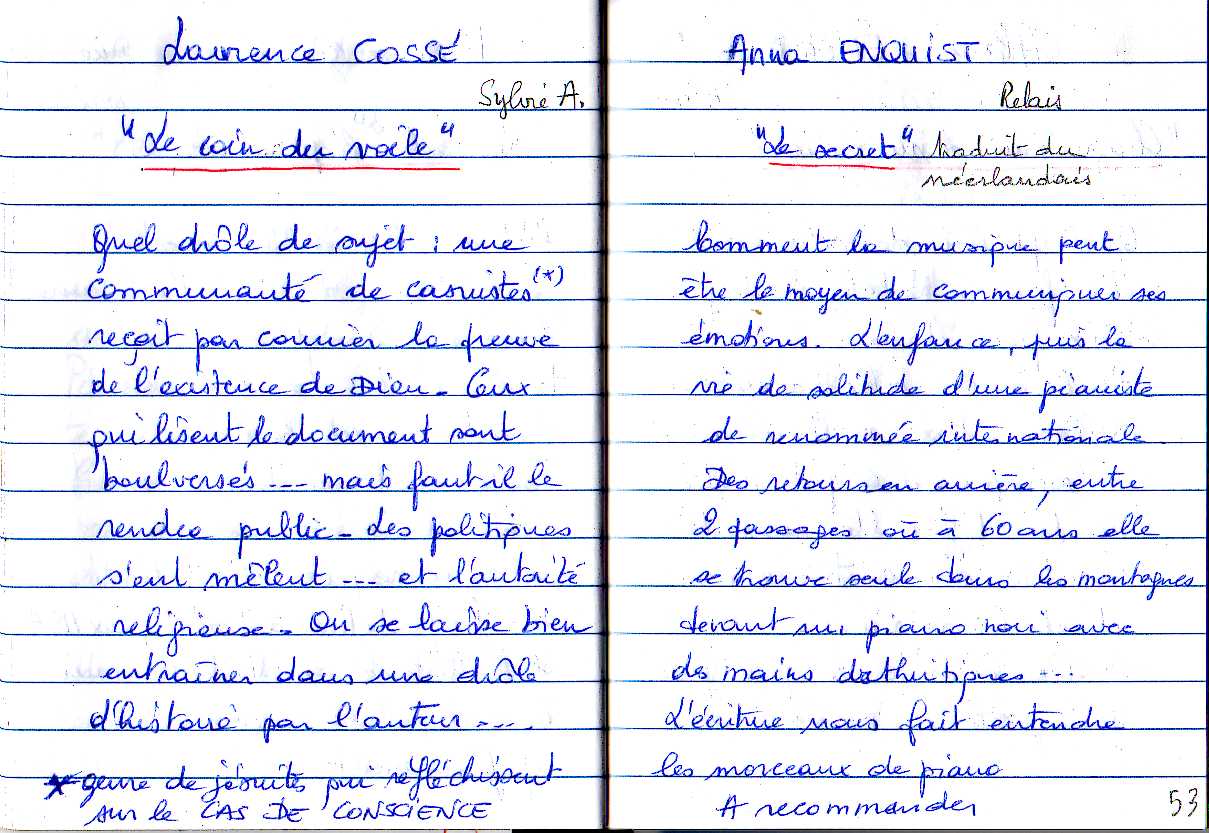 Laurence COSSÉ
Sylvie A.
"Le coin du voile"
Quel drôle de sujet : une
communauté de casuistes (*)
reçoit par courrier la preuve
de l'existence de Dieu. Ceux
qui lisent le document sont
boulversés --- mais faut-il le
rendre public. Les politiques
s'ent mêlent --- et l'autorité
religieuse. On se laisse bien
entraîner dans une drôle
d'histoire par l'auteur ---
* genre de jésuites qui réfléchissent
sur le CAS DE CONSCIENCE
Anna ENQUIST
Relais
"Le secret" traduit du
néerlandais
Comment la musique peut
être le moyen de communiquer ses
émotions. L'enfance, puis la
vie de solitude d'une pianiste
de renommée internationale.
Des retours en arrière, entre
2 passages où à 60 ans elle
se trouve seule dans les montagnes
devant un piano noir avec
des mains d'arthritiques ---
L'écriture nous fait entendre
les morceaux de piano
A recommander
53